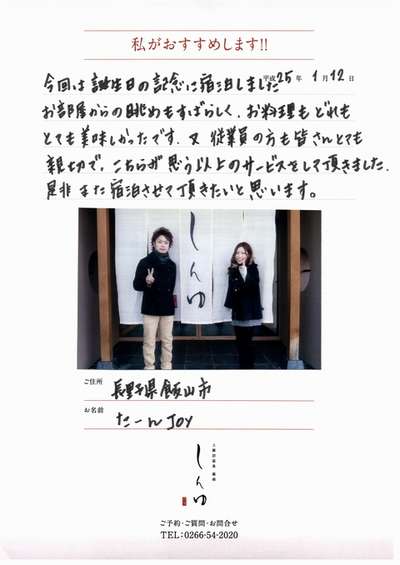 私がおすすめします!!
平成25年 1月12日
今回は誕生日の記念に宿泊しました
お部屋からの眺めもすばらしく、お料理もどれも
とても美味しかったです。又 従業員の方も皆さんとても
親切で、こちらが思う以上のサービスをして頂きました。
是非また宿泊させて頂きたいと思います。
しんゆ
ご住所 長野県飯山市
お名前 たーんJOY
しんゆ
ご予約・ご質問・お問合せ
TEL:0266-54-2020